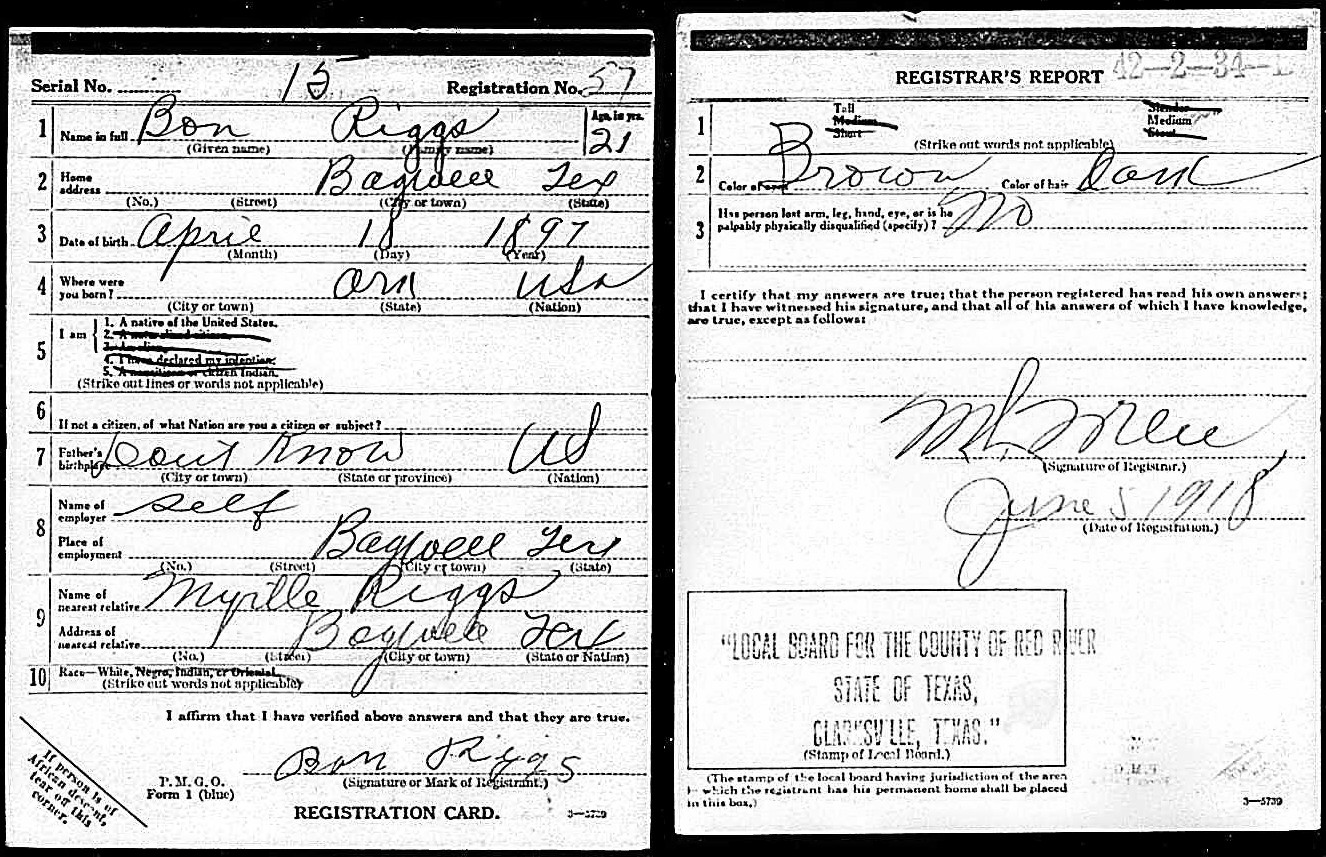 Serial No. 15 Registration No. 57
1 Name in full Bon Riggs Age, in yrs. 21
(Given name) (Family name)
2 Home address Bagwell Tex
(No.) (Street) (City or town) (State)
3 Date of birth April 18 1897
(Month) (Day) (Year)
4 Where were you born? Ark USA
(City or town) (State) (Nation)
5 I am 1. A native of the United States.
2. A naturalized citizen.
3. An alien.
4. I have declared my intention.
5. A noncitizen or citizen Indian.
(Strike out lines or words not applicable)
6 If not a citizen, of what Nation are you a citizen or subject?
7 Father's birthplace Dont Know US
(City or town) (State or province) (Nation)
8 Name of employer self
Place of employment Bagwell Tex
(No.) (Street) (City or town) (State)
9 Name of nearest relative Myrtle Riggs
Address of nearest relative Bagwell Tex
(No.) (Street) (City or town) (State or Nation)
10 Race—White, Negro, Indian, or Oriental.
(Strike out words not applicable)
I affirm that I have verified above answers and that they are true.
Bon Riggs
P. M. G. O.
Form 1 (blue)
(Signature or Mark of Registrant.)
REGISTRATION CARD. 3—5739
If person is of
African descent,
tear off this
corner.
REGISTRAR'S REPORT 42—2—34—
1 Tall Slender
Medium Medium
Short Stout
(Strike out words not applicable)
2 Color of eyes Brown Color of hair Dark
3 Has person lost arm, leg, hand, eye, or is he
palpably physically disqualified (specify)? No
I certify that my answers are true; that the person registered has read his own answers;
that I have witnessed his signature, and that all of his answers of which I have knowledge,
are true, except as follows:
(Signature of Registrar.)
June 5 1918
(Date of Registration.)
"LOCAL BOARD FOR THE COUNTY OF RED RIVER
STATE OF TEXAS,
CLARKSVILLE, TEXAS."
(Stamp of Local Board.)
(The stamp of the local board having jurisdiction of the area
in which the registrant has his permanent home shall be placed
in this box.) 3—5739